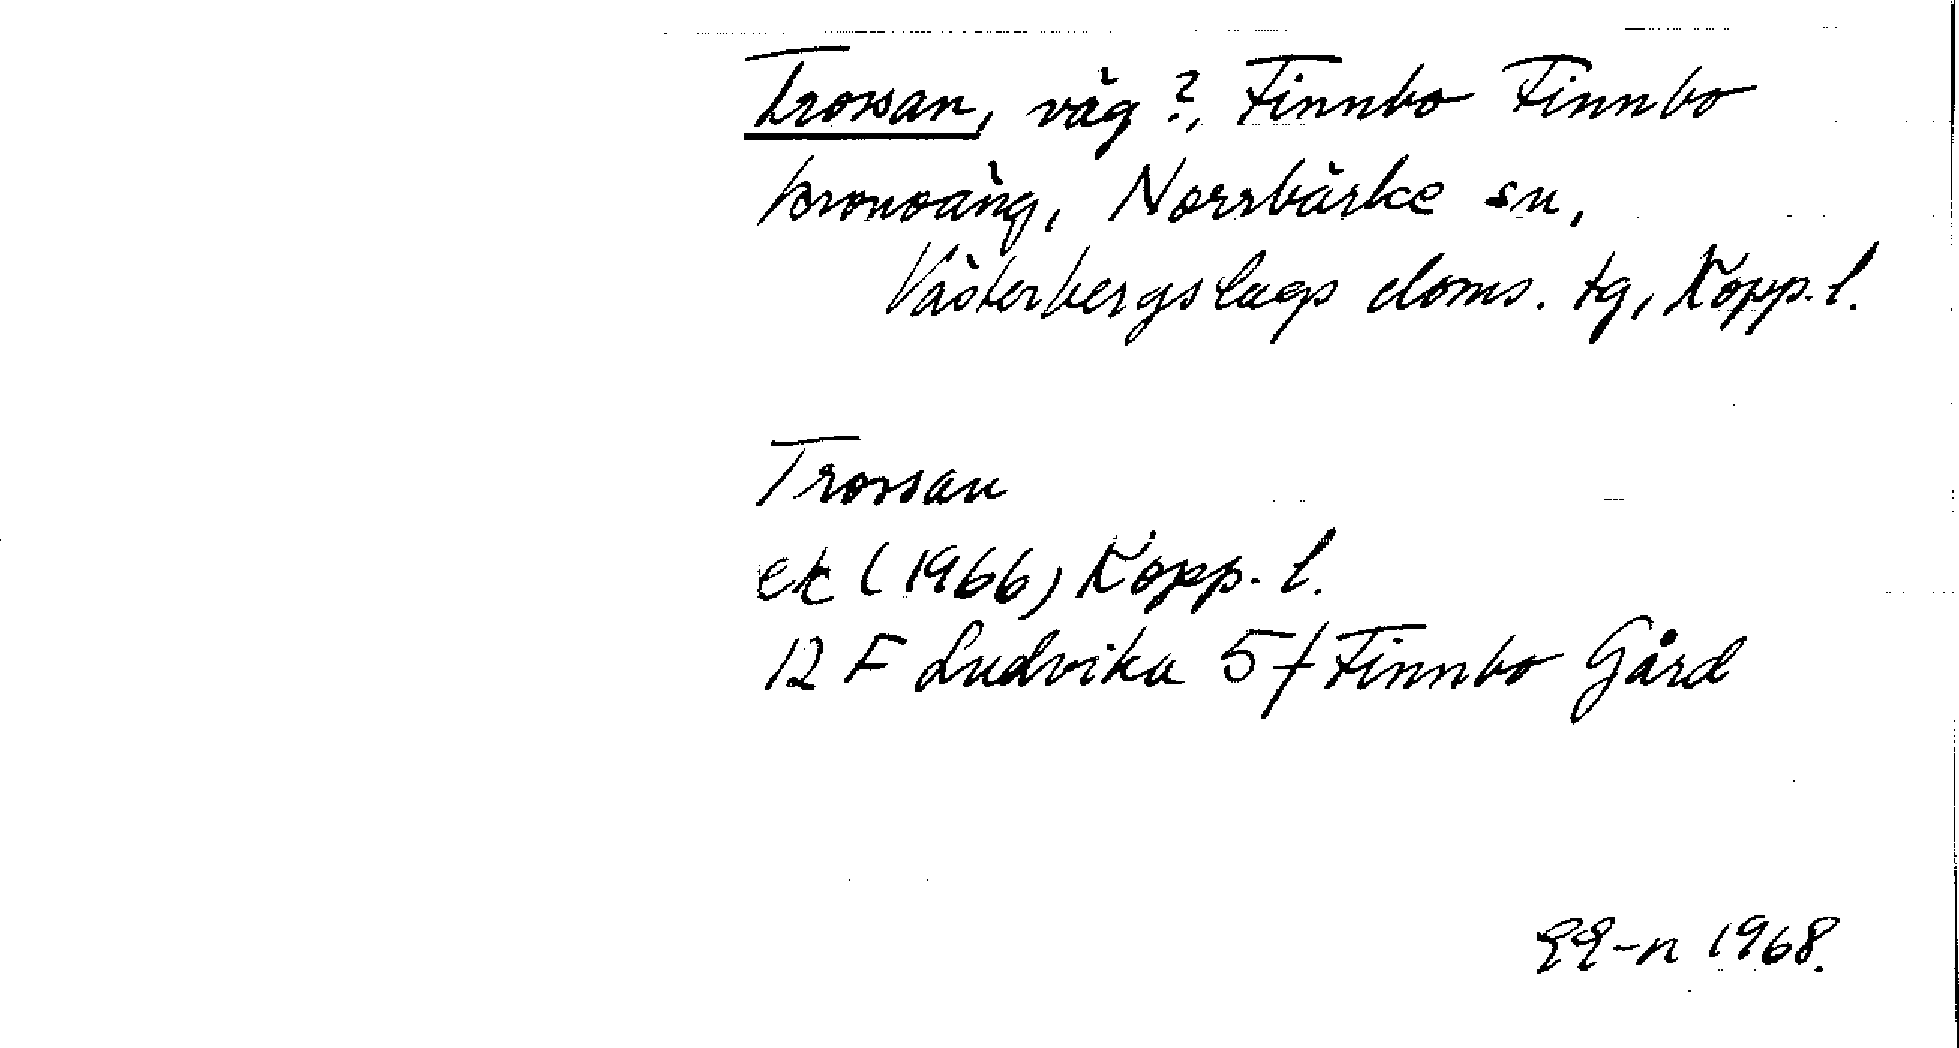 Trossan, väg?, Finnbo Finnbo
kronoäng, Norrbärke sn,
Västerbergslags doms. tg, Kopp. l.
Trossan
ek (1966) Kopp. l.
12 F Ludvika 5 f Finnbo Gård
1968.